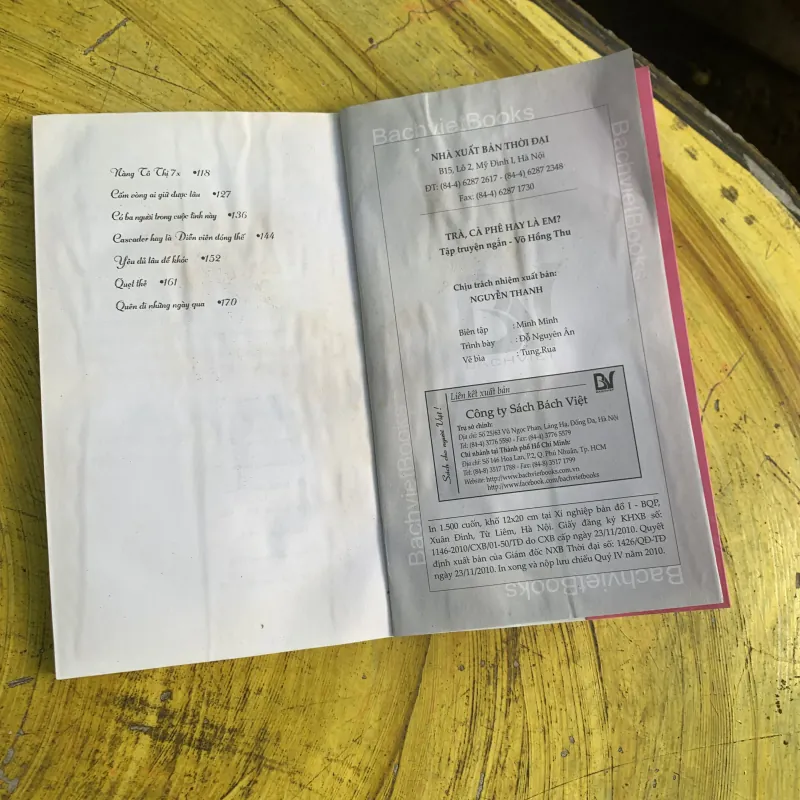 Nàng Tô Thị 7x •118
Cấm vòng ai giữ được lâu •127
Cả ba người trong cuộc tình này •136
Cascader hay là Diễn viên đóng thế •144
Yêu dù lâu để khóc •152
Quẹt thô •161
Quên đi những ngày qua •170
BachvietBooks
NHÀ XUẤT BẢN THỜI ĐẠI
B15, Lô 2, Mỹ Đình I, Hà Nội
ĐT: (84-4) 6287 2617 - (84-4) 6287 2348
Fax: (84-4) 6287 1730
TRÀ, CÀ PHÊ HAY LÀ EM?
Tập truyện ngắn - Võ Hồng Thu
Chịu trách nhiệm xuất bản:
NGUYỄN THANH
Biên tập : Minh Minh
Trình bày : Đỗ Nguyên Ân
Vẽ bìa : Tung.Rua
BachvietBooks
BachvietBooks
Sách cho người Việt !
Liên kết xuất bản
BV
Công ty Sách Bách Việt
Trụ sở chính:
Địa chỉ: Số 25/63 Vũ Ngọc Phan, Láng Hạ, Đống Đa, Hà Nội
Tel: (84-4) 3776 5580 - Fax: (84-4) 3776 5579
Chi nhánh tại Thành phố Hồ Chí Minh:
Địa chỉ: Số 146 Hoa Lan, P.2, Q. Phú Nhuận, Tp. HCM
Tel: (84-8) 3517 1788 - Fax: (84-8) 3517 1799
Website: http://www.bachvietbooks.com.vn
http://www.facebook.com/bachvietbooks
In 1.500 cuốn, khổ 12x20 cm tại Xí nghiệp bản đồ I - BQP,
Xuân Đỉnh, Từ Liêm, Hà Nội. Giấy đăng ký KHXB số:
1146-2010/CXB/01-50/TĐ do CXB cấp ngày 23/11/2010. Quyết
định xuất bản của Giám đốc NXB Thời đại số: 1426/QĐ-TĐ
ngày 23/11/2010. In xong và nộp lưu chiểu Quý IV năm 2010.
BachvietBooks